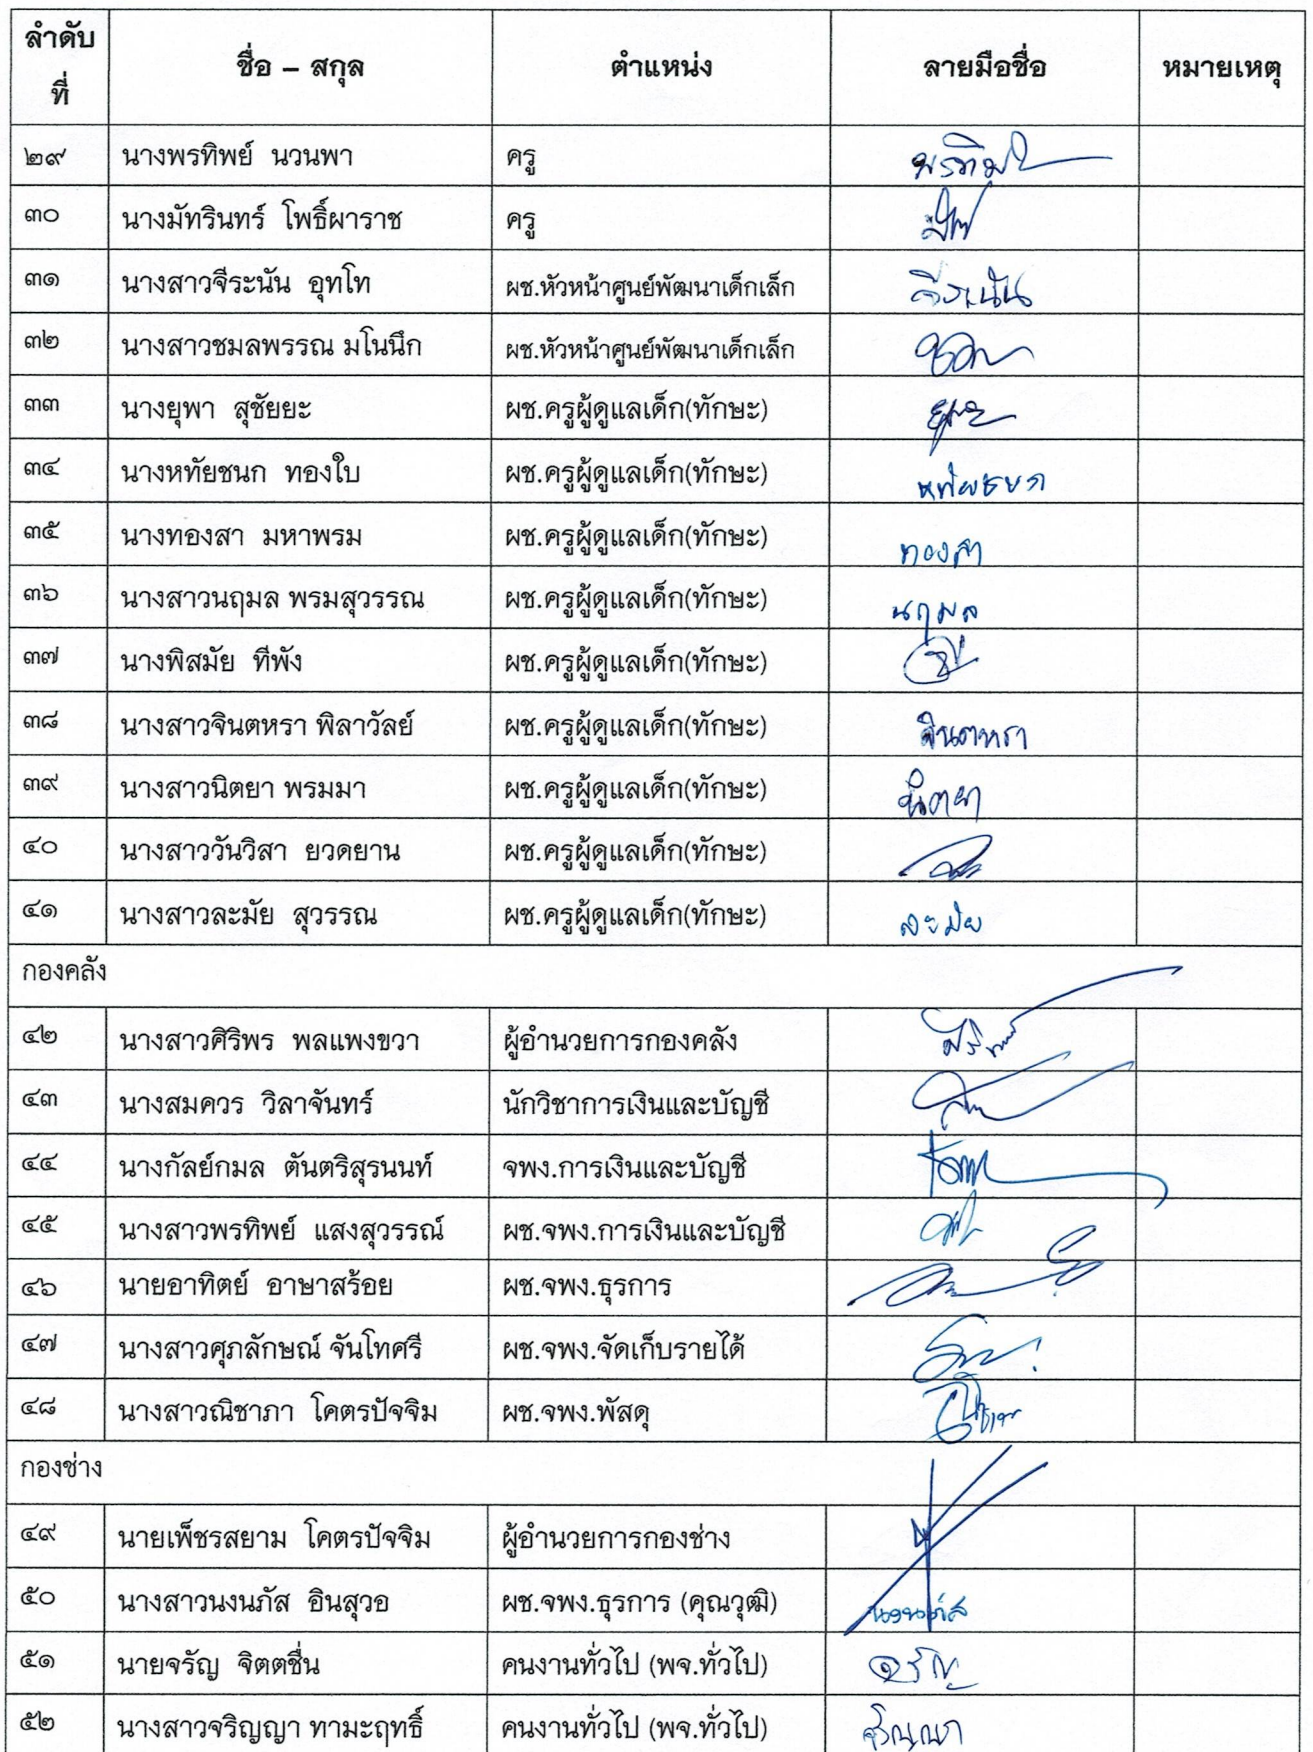 ลำดับที่ ชื่อ – สกุล ตำแหน่ง ลายมือชื่อ หมายเหตุ
๒๙ นางพรทิพย์ นวนพา ครู พรทิพย์
๓๐ นางมัทรินทร์ โพธิ์ผาราช ครู
๓๑ นางสาวจีระนัน อุทโท ผช.หัวหน้าศูนย์พัฒนาเด็กเล็ก จีระนัน
๓๒ นางสาวชมลพรรณ มโนนึก ผช.หัวหน้าศูนย์พัฒนาเด็กเล็ก
๓๓ นางยุพา สุชัยยะ ผช.ครูผู้ดูแลเด็ก(ทักษะ)
๓๔ นางหทัยชนก ทองใบ ผช.ครูผู้ดูแลเด็ก(ทักษะ) หทัยชนก
๓๕ นางทองสา มหาพรม ผช.ครูผู้ดูแลเด็ก(ทักษะ) ทองสา
๓๖ นางสาวนฤมล พรมสุวรรณ ผช.ครูผู้ดูแลเด็ก(ทักษะ) นฤมล
๓๗ นางพิสมัย ทีพัง ผช.ครูผู้ดูแลเด็ก(ทักษะ)
๓๘ นางสาวจินตหรา พิลาวัลย์ ผช.ครูผู้ดูแลเด็ก(ทักษะ) จินตหรา
๓๙ นางสาวนิตยา พรมมา ผช.ครูผู้ดูแลเด็ก(ทักษะ) นิตยา
๔๐ นางสาววันวิสา ยวดยาน ผช.ครูผู้ดูแลเด็ก(ทักษะ)
๔๑ นางสาวละมัย สุวรรณ ผช.ครูผู้ดูแลเด็ก(ทักษะ) ละมัย
กองคลัง
๔๒ นางสาวศิริพร พลแพงขวา ผู้อำนวยการกองคลัง
๔๓ นางสมควร วิลาจันทร์ นักวิชาการเงินและบัญชี
๔๔ นางกัลย์กมล ตันตริสุรนนท์ จพง.การเงินและบัญชี
๔๕ นางสาวพรทิพย์ แสงสุวรรณ์ ผช.จพง.การเงินและบัญชี
๔๖ นายอาทิตย์ อาษาสร้อย ผช.จพง.ธุรการ
๔๗ นางสาวศุภลักษณ์ จันโทศรี ผช.จพง.จัดเก็บรายได้
๔๘ นางสาวณิชาภา โคตรปัจจิม ผช.จพง.พัสดุ
กองช่าง
๔๙ นายเพ็ชรสยาม โคตรปัจจิม ผู้อำนวยการกองช่าง
๕๐ นางสาวนงนภัส อินสุวอ ผช.จพง.ธุรการ (คุณวุฒิ) นงนภัส
๕๑ นายจรัญ จิตตชื่น คนงานทั่วไป (พจ.ทั่วไป) จรัญ
๕๒ นางสาวจริญญา ทามะฤทธิ์ คนงานทั่วไป (พจ.ทั่วไป) จริญญา